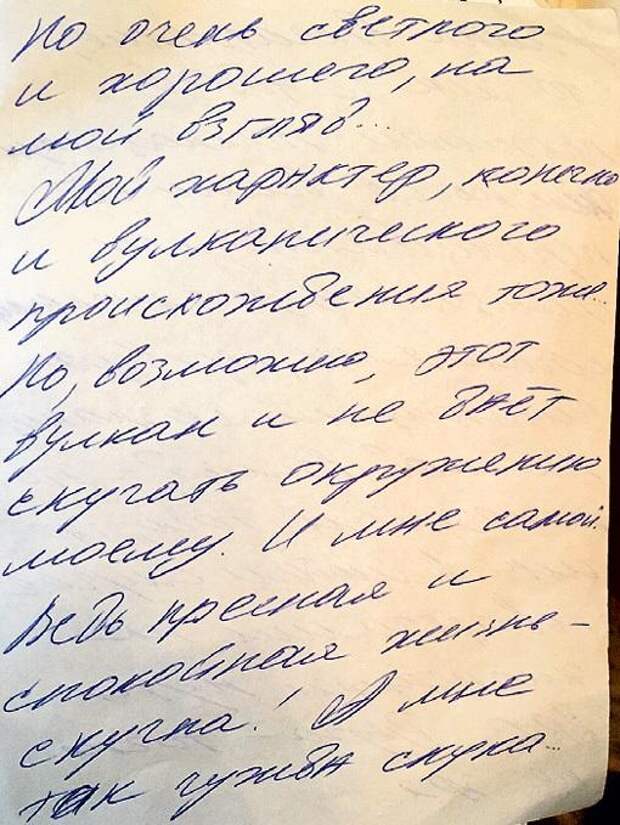 Но очень светлого
и хорошего, на
мой взгляд...
Мой характер, конечно
и вулканического
происхождения тоже...
Но, возможно, этот
вулкан и не даёт
скучать окружению
моему. И мне самой.
Ведь пресная и
спокойная жизнь -
скучна! А мне
так чужда скука...